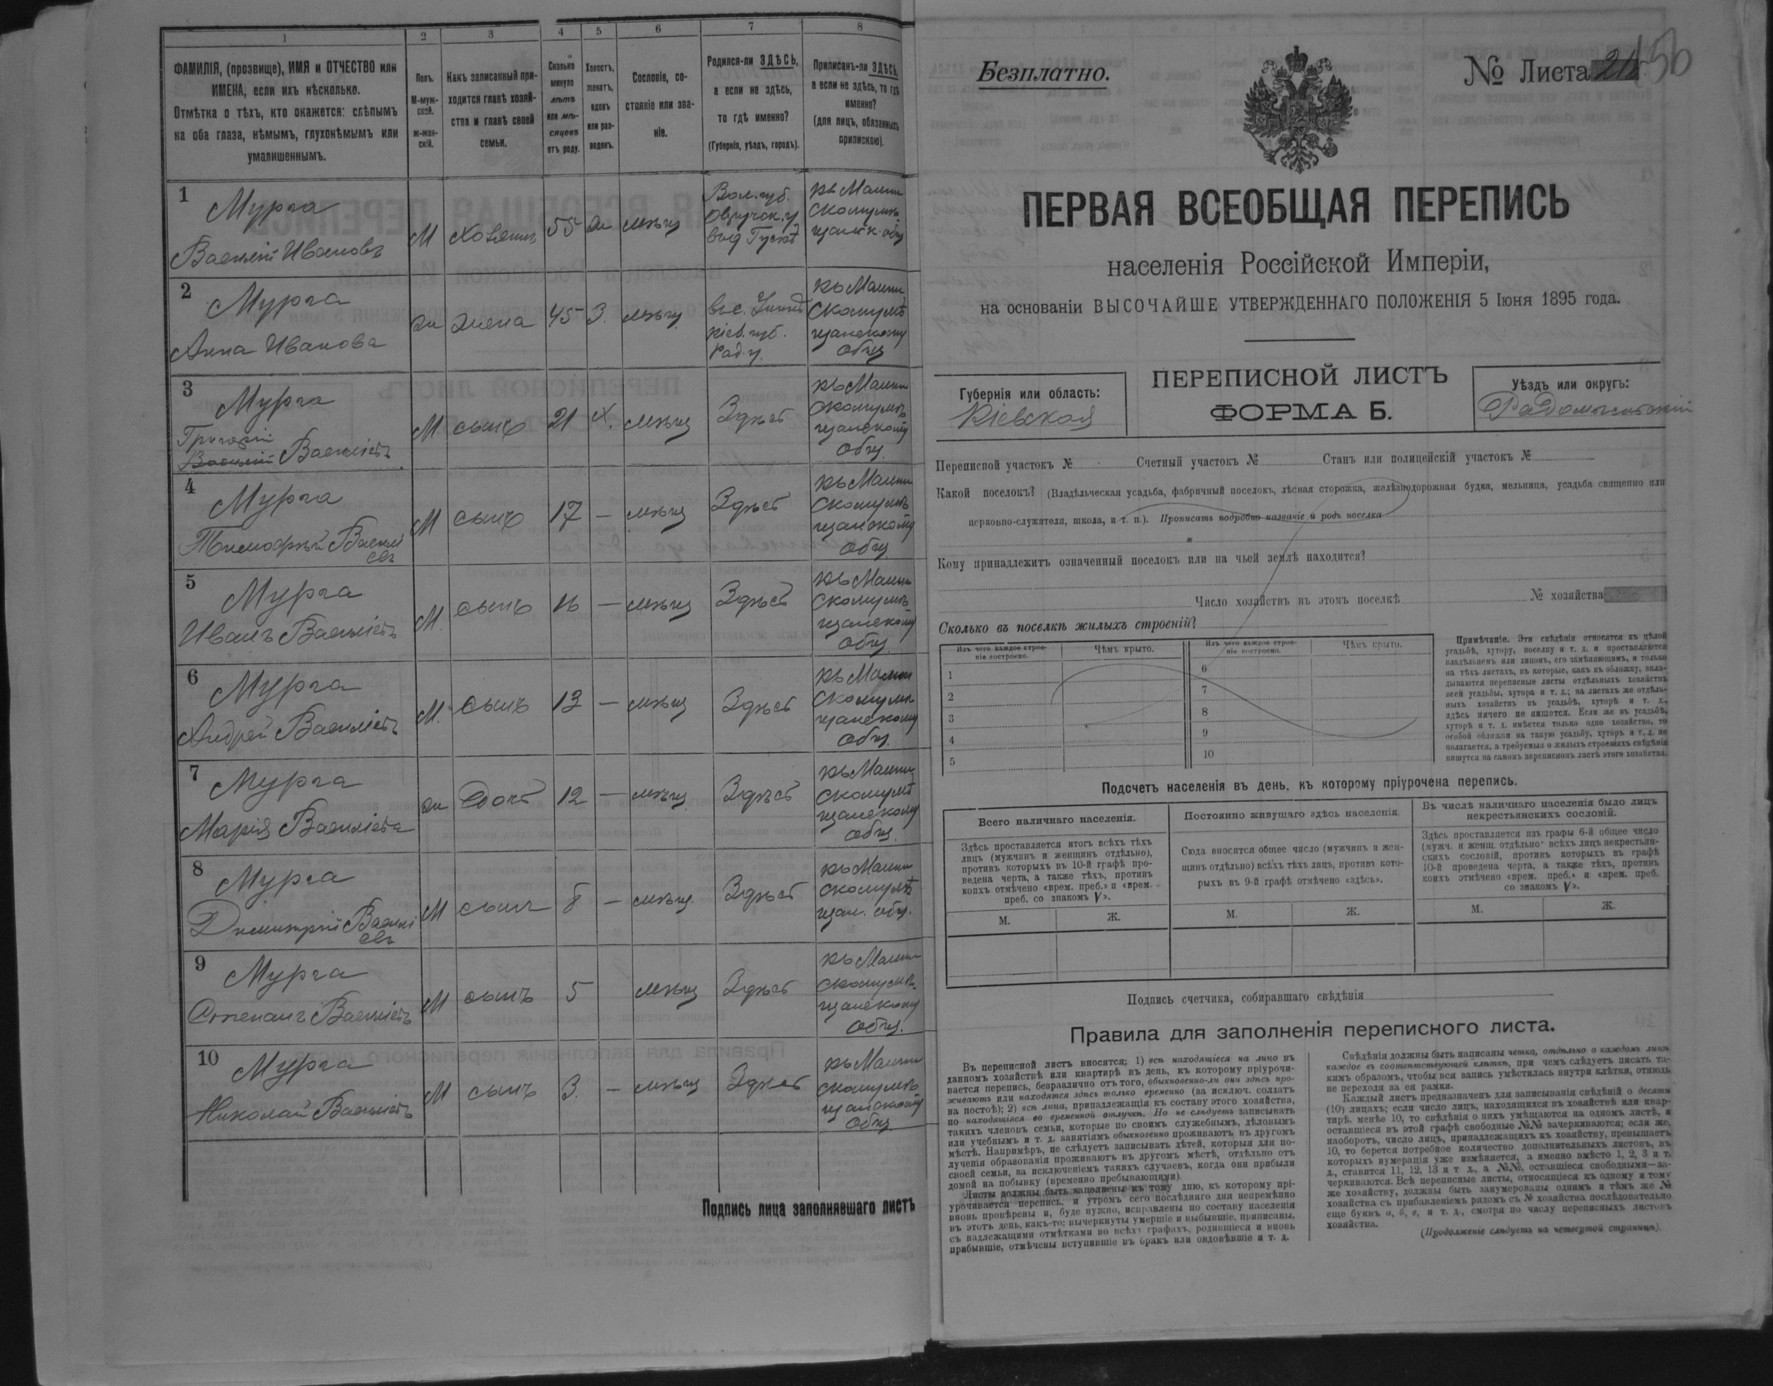 1
2
3
4
5
6
7
8
ФАМИЛІЯ, (прозвище), ИМЯ и ОТЧЕСТВО или
ИМЕНА, если ихъ нѣсколько.
Отмѣтка о тѣхъ, кто окажется: слѣпымъ
на оба глаза, нѣмымъ, глухонѣмымъ или
умалишеннымъ.
Полъ.
М-муж-
ской.
ж-жен-
скій.
Какъ записанный при-
ходится главѣ хозяй-
ства и главѣ своей
семьи.
Сколько
минуло
лѣтъ
или мѣ-
сяцевъ
отъ роду.
Холостъ,
женатъ,
вдовъ
или раз-
веденъ.
Сословіе, со-
стояніе или зва-
ніе.
Родился-ли ЗДѢСЬ,
а если не здѣсь,
то гдѣ именно?
(Губернія, уѣздъ, городъ).
Приписанъ-ли ЗДѢСЬ,
а если не здѣсь, то гдѣ
именно?
(для лицъ, обязанныхъ
припискою).
1
Мурга
Василій Ивановъ
М
хозяинъ
55
Вол. губ.
Овручск. у.
къ Малин
2
Мурга
Анна Иванова
жена
45
З.
Кіев. губ.
Рад. у.
къ Малин
общ
3
Мурга
Григорій
Василій Васильевъ
М
сынъ
21
Х.
Здѣсь
къ Малин
общ.
4
Мурга
Тимофѣй Василі
евъ
М
сынъ
17
—
Здѣсь
къ Малин
общ.
5
Мурга
Иванъ Васильевъ
М.
сынъ
16
—
Здѣсь
къ Малин
общ.
6
Мурга
Андрей Васильевъ
М.
сынъ
13
—
Здѣсь
къ Малин
общ.
7
Мурга
Марія Васильева
дочь
12
—
Здѣсь
къ Малин
общ.
8
Мурга
Димитрій Василі
евъ
М
сынъ
8
—
Здѣсь
къ Малин
общ.
9
Мурга
Степанъ Васильевъ
М
сынъ
5
Здѣсь
къ Малин
общ.
10
Мурга
Николай Васильевъ
М
сынъ
3.
—
Здѣсь
къ Малин
общ
Подпись лица заполнявшаго листъ
Безплатно.
№ Листа
ПЕРВАЯ ВСЕОБЩАЯ ПЕРЕПИСЬ
населенія Россійской Имперіи,
на основаніи ВЫСОЧАЙШЕ УТВЕРЖДЕННАГО ПОЛОЖЕНІЯ 5 Іюня 1895 года.
Губернія или область:
Кіевская
ПЕРЕПИСНОЙ ЛИСТЪ
ФОРМА Б.
Уѣздъ или округъ:
Радомысльскій
Переписной участокъ № Счетный участокъ № Станъ или полицейскій участокъ №
Какой поселокъ? (Владѣльческая усадьба, фабричный поселокъ, лѣсная сторожка, желѣзнодорожная будка, мельница, усадьба священно или
церковно-служителя, школа, и т. п.). Прописать подробно названіе и родъ поселка
Кому принадлежитъ означенный поселокъ или на чьей землѣ находится?
Число хозяйствъ въ этомъ поселкѣ № хозяйства
Сколько въ поселкѣ жилыхъ строеній?
Изъ чего каждое строе-
ніе построено.
Чѣмъ крыто.
Изъ чего каждое строе-
ніе построено.
Чѣмъ крыто.
1
2
3
4
5
6
7
8
9
10
Примѣчаніе. Эти свѣдѣнія относятся къ цѣлой
усадьбѣ, хутору, поселку и т. д. и проставляются
владѣльцемъ или лицомъ, его замѣняющимъ, и только
на тѣхъ листахъ, въ которые, какъ въ обложку, вкла-
дываются переписные листы отдѣльныхъ хозяйствъ
всей усадьбы, хутора и т. д.; на листахъ же отдѣль-
ныхъ хозяйствъ въ усадьбѣ, хуторѣ и т. д.,
здѣсь ничего не пишется. Если же въ усадьбѣ,
хуторѣ и т. д. имѣется только одно хозяйство, то
особой обложки на такую усадьбу, хуторъ и т. д. не
полагается, а требуемыя о жилыхъ строеніяхъ свѣдѣнія
пишутся на самомъ переписномъ листѣ этого хозяйства.
Подсчетъ населенія въ день, къ которому пріурочена перепись.
Всего наличнаго населенія.
Здѣсь проставляется итогъ всѣхъ тѣхъ
лицъ (мужчинъ и женщинъ отдѣльно),
противъ которыхъ въ 10-й графѣ про-
ведена черта, а также тѣхъ, противъ
коихъ отмѣчено «врем. преб.» и «врем.
преб. со знакомъ V».
М.
Ж.
Постоянно живущаго здѣсь населенія.
Сюда вносится общее число (мужчинъ и жен-
щинъ отдѣльно) всѣхъ тѣхъ лицъ, противъ кото-
рыхъ въ 9-й графѣ отмѣчено «здѣсь».
М.
Ж.
Въ числѣ наличнаго населенія было лицъ
некрестьянскихъ сословій.
Здѣсь проставляется изъ графы 6-й общее число
(мужч. и женщ. отдѣльно) всѣхъ лицъ некрестьян-
скихъ сословій, противъ которыхъ въ графѣ
10-й проведена черта, а также тѣхъ, противъ
коихъ отмѣчено «врем. преб.» и «врем. преб.
со знакомъ V».
М.
Ж.
Подпись счетчика, собиравшаго свѣдѣнія
Правила для заполненія переписного листа.
Въ переписной листъ вносятся; 1) всѣ находящіеся на лицо въ
данномъ хозяйствѣ или квартирѣ въ день, къ которому пріурочи-
вается перепись, безразлично отъ того, обыкновенно-ли они здѣсь про-
живаютъ или находятся здѣсь только временно (за исключ. солдатъ
на постоѣ); 2) всѣ лица, принадлежащія къ составу этого хозяйства,
но находящіеся во временной отлучкѣ. Но не слѣдуетъ записывать
такихъ членовъ семьи, которые по своимъ служебнымъ, дѣловымъ
или учебнымъ и т. д. занятіямъ обыкновенно проживаютъ въ другомъ
мѣстѣ. Напримѣръ, не слѣдуетъ записывать дѣтей, которыя для по-
лученія образованія проживаютъ въ другомъ мѣстѣ, отдѣльно отъ
своей семьи, за исключеніемъ такихъ случаевъ, когда они прибыли
домой на побывку (временно пребывающими).
Листы должны быть заполнены къ тому дню, къ которому прі-
урочивается перепись, и утромъ сего послѣдняго дня непремѣнно
вновь провѣрены и, буде нужно, исправлены по составу населенія
въ этотъ день, какъ-то: вычеркнуты умершіе и выбывшіе, приписаны,
съ надлежащими отмѣтками во всѣхъ графахъ, родившіеся и вновь
прибывшіе, отмѣчены вступившіе въ бракъ или овдовѣвшіе и т. д.
Свѣдѣнія должны быть написаны четко, отдѣльно о каждомъ лицѣ
каждое въ соотвѣтствующей клѣткѣ, при чемъ слѣдуетъ писать та-
кимъ образомъ, чтобы вся запись умѣстилась внутри клѣтки, отнюдь
не переходя за ея рамки.
Каждый листъ предназначенъ для записыванія свѣдѣній о десяти
(10) лицахъ; если число лицъ, находящихся въ хозяйствѣ или квар-
тирѣ, менѣе 10, то свѣдѣнія о нихъ умѣщаются на одномъ листѣ, а
оставшіеся въ этой графѣ свободные №№ зачеркиваются; если же,
наоборотъ, число лицъ, принадлежащихъ къ хозяйству, превышаетъ
10, то берется потребное количество дополнительныхъ листовъ, въ
которыхъ нумерація уже измѣняется, а именно вмѣсто 1, 2, 3 и т.
д., ставится 11, 12, 13 и т. д., а №№, оставшіеся свободными—за-
черкиваются. Всѣ переписные листы, относящіеся къ одному и тому
же хозяйству, должны быть занумерованы однимъ и тѣмъ же №
хозяйства съ прибавленіемъ рядомъ съ № хозяйства послѣдовательно
еще буквъ а, б, в, и т. д., смотря по числу переписныхъ листовъ
хозяйства.
(Продолженіе слѣдуетъ на четвертой страницѣ).